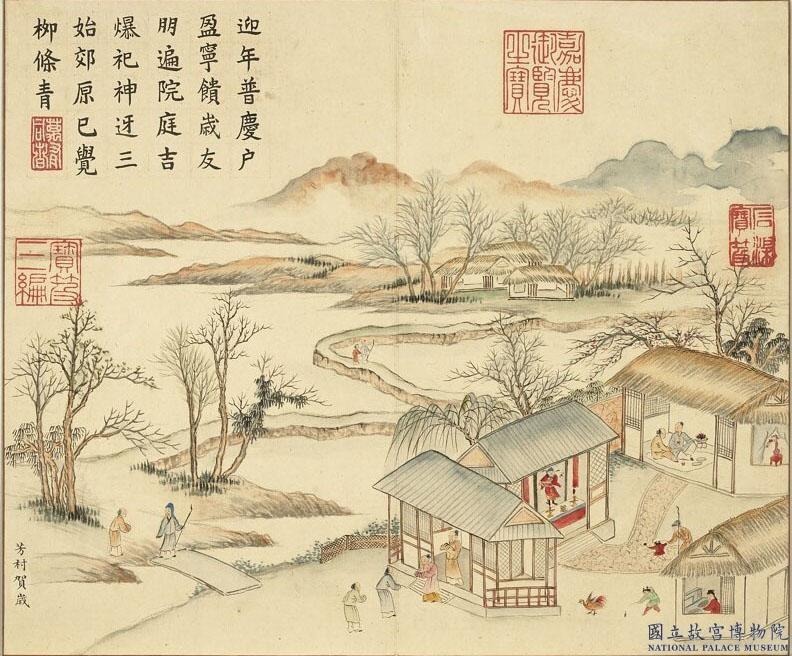 迎年普慶户
盈寧饋歲友
朋遍院庭吉
爆祀神迓三
始郊原已覺
栁條青
嘉慶御覽之寶
石渠寶笈
寶笈三編
芳村賀歲
國立故宮博物院
NATIONAL PALACE MUSEUM